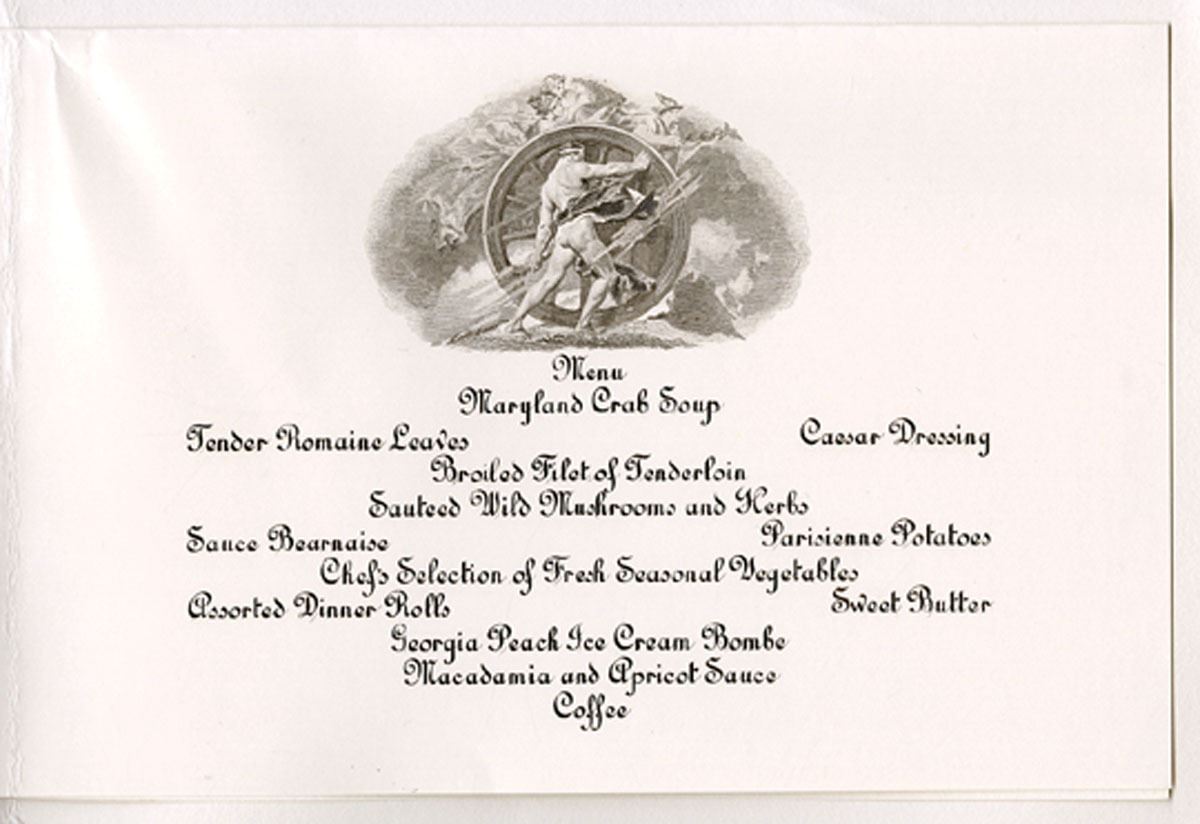 Menu
Maryland Crab Soup
Tender Romaine Leaves Caesar Dressing
Broiled Filet of Tenderloin
Sauteed Wild Mushrooms and Herbs
Sauce Bearnaise Parisienne Potatoes
Chef's Selection of Fresh Seasonal Vegetables
Assorted Dinner Rolls Sweet Butter
Georgia Peach Ice Cream Bombe
Macadamia and Apricot Sauce
Coffee